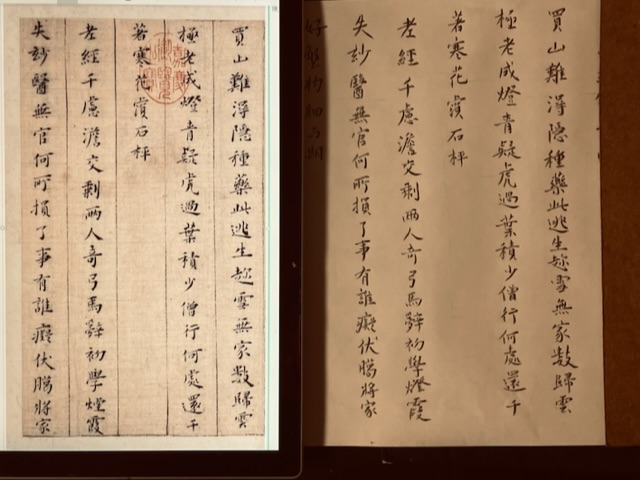 買山難得隱種藥此逃生趁雪無家數歸雲
極老成燈青疑虎過葉積少僧行何處還千
著寒花石枰
老經千慮澹交剩兩人奇弓馬辭初學煙霞
失紗醫無官何所損了事有誰癡伏臘將家
買山難得隱種藥此逃生趁雪無家數歸雲
極老成燈青疑虎過葉積少僧行何處還千
著寒花石枰
老經千慮澹交剩兩人奇弓馬辭初學煙霞
失紗醫無官何所損了事有誰癡伏臘將家